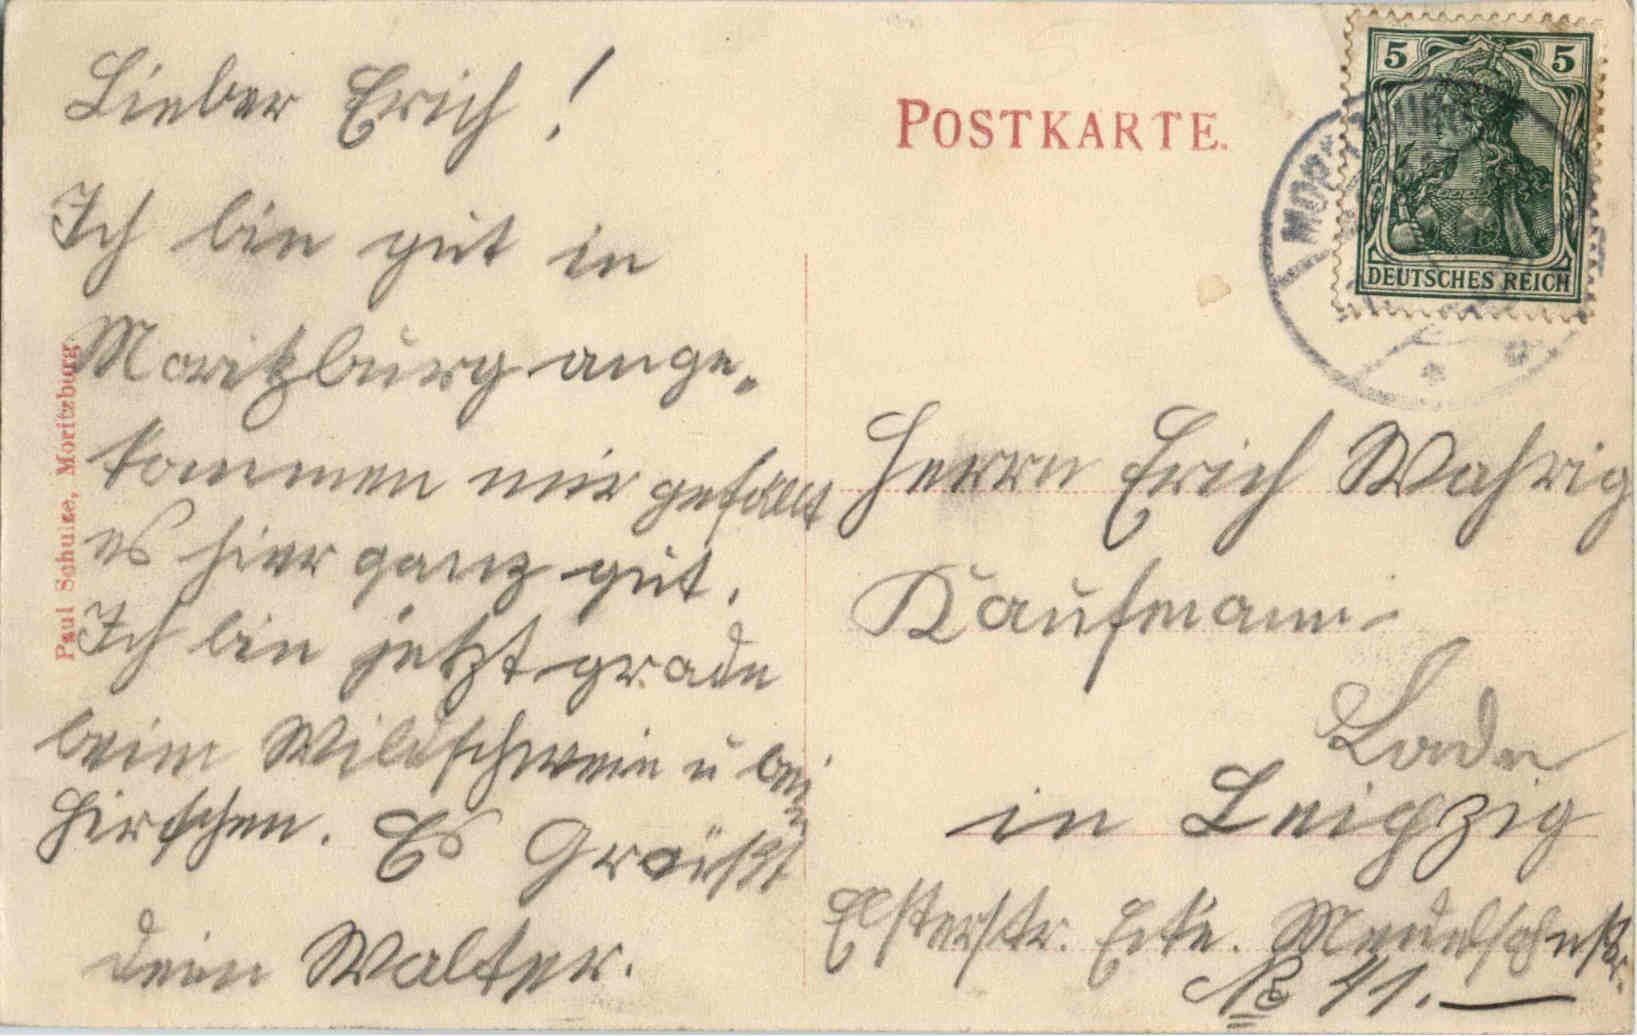 Lieber Erich!
Ich bin gut in
Moritzburg ange-
kommen mir gefällt
es hier ganz gut.
Ich bin jetzt grade
beim Wildschwein u bei
Hirschen. Es Grüßt
dein Walter.
Paul Schulze, Moritzburg.
POSTKARTE.
5 5
DEUTSCHES REICH
Herrn Erich Wahrig
Kaufmann
in Leipzig
Elsterstr. Ecke. Mendelsohnstr.
No 41.